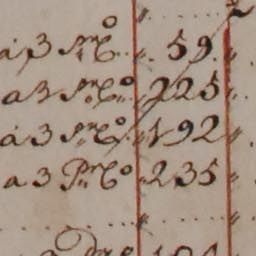 a 3 P.r C.o 59
a 3 P.r C.o 225
a 3 P.r C.o 192
a 3 P.r C.o 235